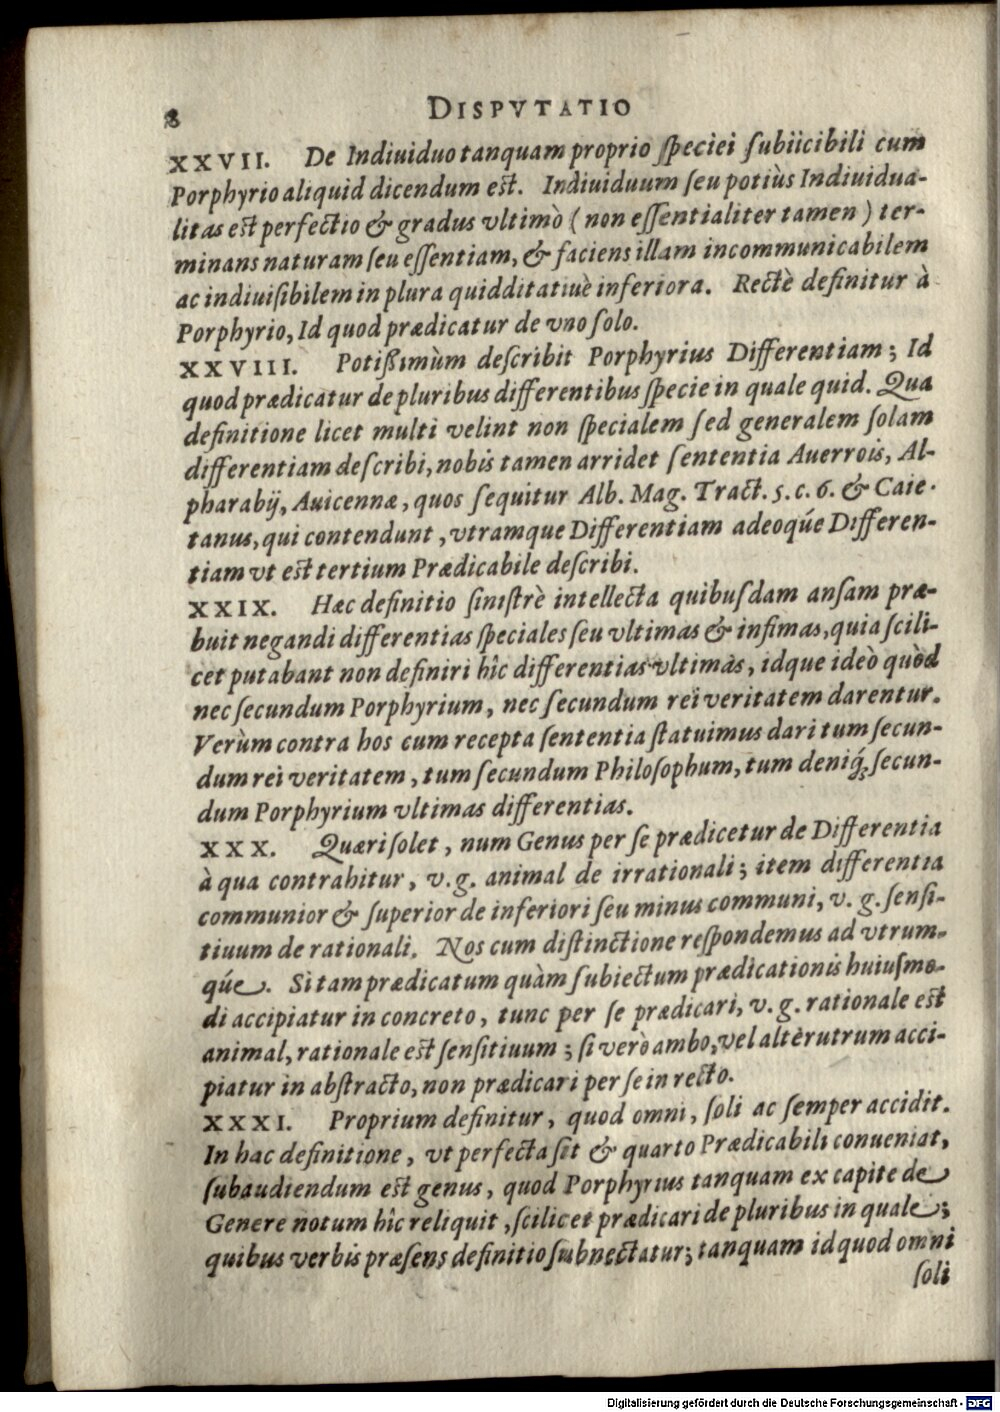 8 DISPVTATIO
XXVII. De Indiuiduo tanquam proprio ſpeciei ſubiicibili cum
Porphyrio aliquid dicendum est. Indiuiduum ſeu potiùs Indiuidua-
litas est perfectio & gradus vltimò (non eſſentialiter tamen) ter-
minans naturam ſeu eſſentiam, & faciens illam incommunicabilem
ac indiuiſibilem in plura quidditatiuè inferiora. Rectè definitur à
Porphyrio, Id quod prædicatur de vno ſolo.
XXVIII. Potißimùm deſcribit Porphyrius Differentiam; Id
quod prædicatur de pluribus differentibus ſpecie in quale quid. Qua
definitione licet multi velint non ſpecialem ſed generalem ſolam
differentiam deſcribi, nobis tamen arridet ſententia Auerrois, Al-
pharabij, Auicennæ, quos ſequitur Alb. Mag. Tract. 5. c. 6. & Caie-
tanus, qui contendunt, vtramque Differentiam adeoq́ue Differen-
tiam vt est tertium Prædicabile deſcribi.
XXIX. Hæc definitio ſiniſtrè intellecta quibuſdam anſam præ-
buit negandi differentias ſpeciales ſeu vltimas & infimas, quia ſcili-
cet putabant non definiri hîc differentias vltimas, idque ideò quòd
nec ſecundum Porphyrium, nec ſecundum rei veritatem darentur.
Verùm contra hos cum recepta ſententia ſtatuimus dari tum ſecun-
dum rei veritatem, tum ſecundum Philoſophum, tum deniq́ꝫ ſecun-
dum Porphyrium vltimas differentias.
XXX. Quæri ſolet, num Genus per ſe prædicetur de Differentia
à qua contrahitur, v.g. animal de irrationali; item differentia
communior & ſuperior de inferiori ſeu minus communi, v. g. ſenſi-
tiuum de rationali. Nos cum diſtinctione reſpondemus ad vtrum-
q́ue. Si tam prædicatum quàm ſubiectum prædicationis huiuſmo-
di accipiatur in concreto, tunc per ſe prædicari, v. g. rationale est
animal, rationale est ſenſitiuum; ſi verò ambo, vel alterutrum acci-
piatur in abſtracto, non prædicari per ſe in recto.
XXXI. Proprium definitur, quod omni, ſoli ac ſemper accidit.
In hac definitione, vt perfecta ſit & quarto Prædicabili conueniat,
ſubaudiendum est genus, quod Porphyrius tanquam ex capite de
Genere notum hîc reliquit, ſcilicet prædicari de pluribus in quale;
quibus verbis præſens definitio ſubnectatur; tanquam id quod omni
ſoli
Digitalisierung gefördert durch die Deutsche Forschungsgemeinschaft - DFG